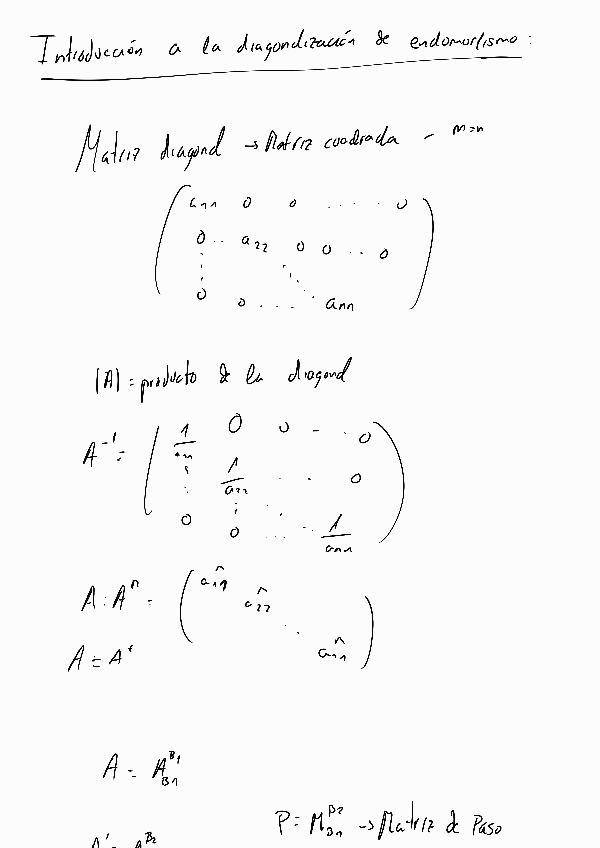 Introducción a la diagondización de endomorfismo:
Matriz diagond → Matriz cuadrada - m=n
( a₁₁ 0 0 ..... 0
0 .. a₂₂ 0 0 .. 0
0 0 .... aₙₙ )
|A| = producto de la diagond
A⁻¹ = ( 1/a₁₁ 0 0 - . 0
1/a₂₂ . . 0
0 0 ... 1/aₙₙ )
A : Aⁿ = ( a₁₁ⁿ
a₂₂ⁿ
aₙₙⁿ )
A = Aᵗ
A = A_{B1}^{B1}
P = M_{B1}^{B2} → Matriz de Paso
A' = a^{B2}